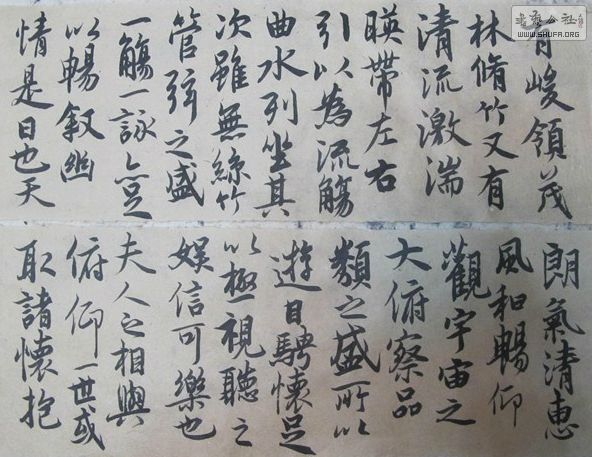 有峻領茂
林脩竹又有
清流激湍
暎帶左右
引以為流觴
曲水列坐其
次雖無絲竹
管弦之盛
一觴一詠亦足
以暢敘幽
情是日也天
朗氣清惠
風和暢仰
觀宇宙之
大俯察品
類之盛所以
遊目騁懷足
以極視聽之
娛信可樂也
夫人之相與
俯仰一世或
取諸懷抱
公社
WWW.SHUFA.ORG